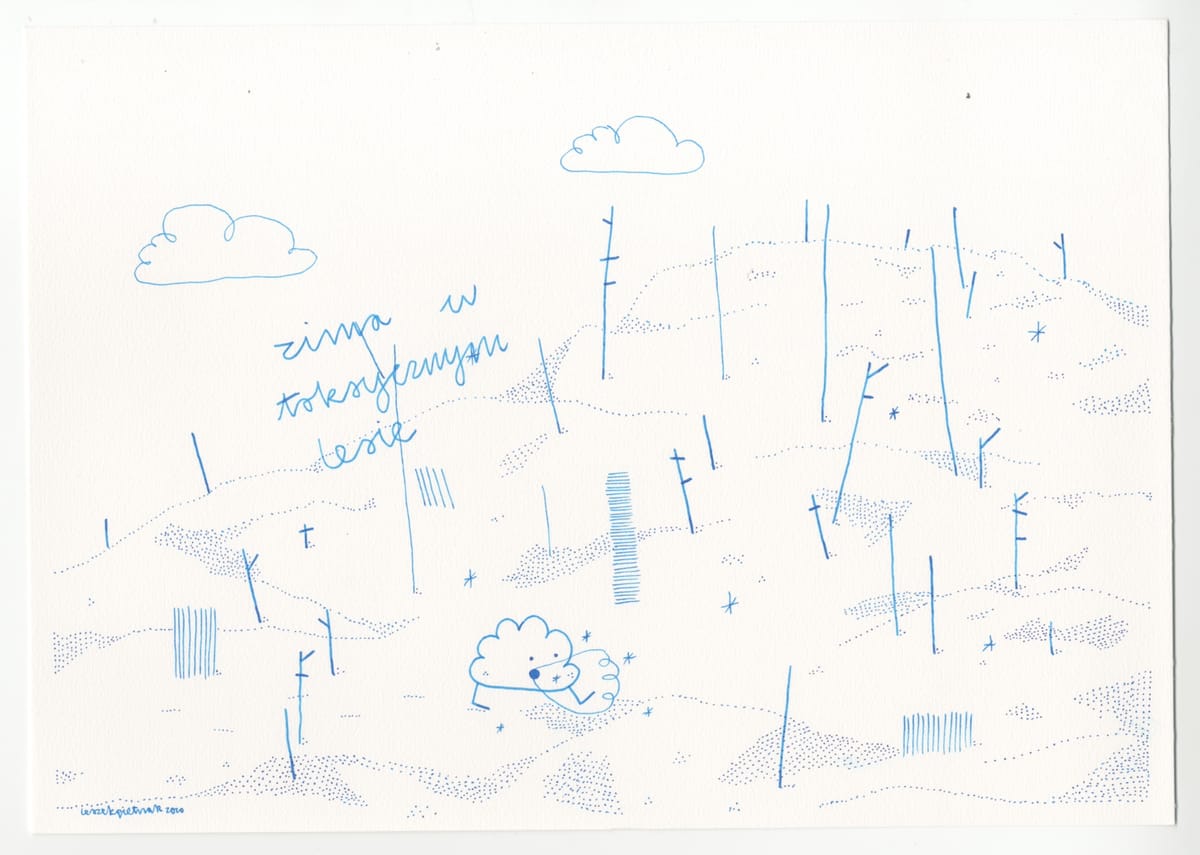 zima w
toksycznym
lesie
leszekpietrzak 2020